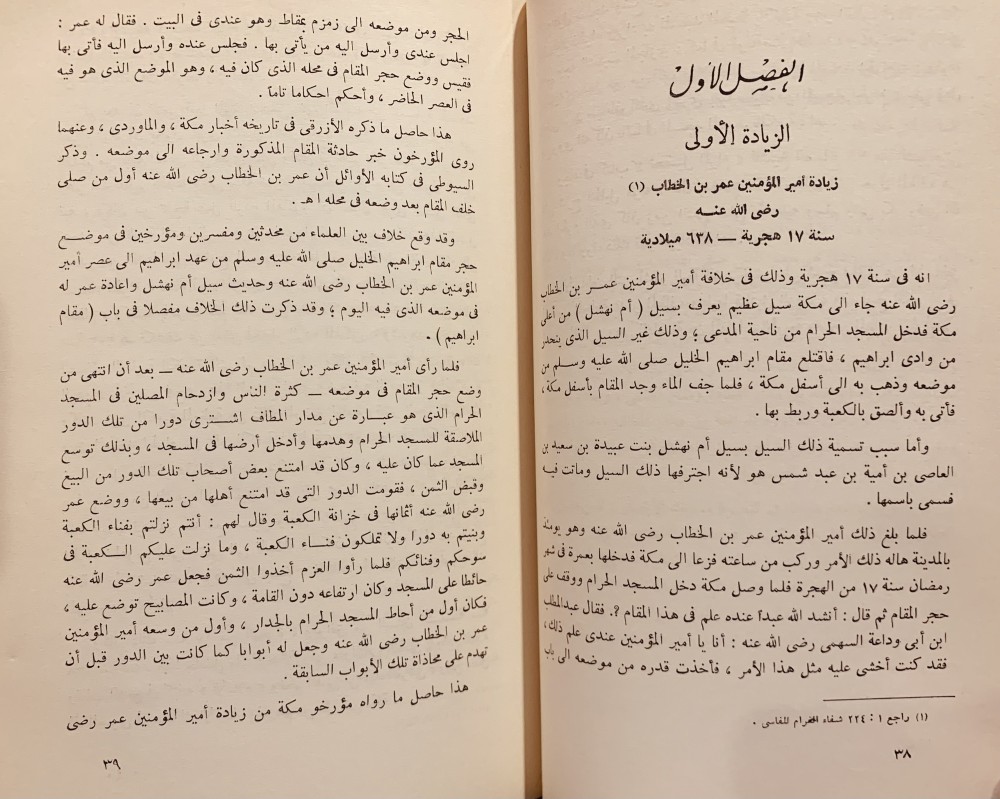 الفصل الأول
الزيادة الأولى
زيادة أمير المؤمنين عمر بن الخطاب (١)
رضى الله عنه
سنة ١٧ هجرية — ٦٣٨ ميلادية
انه فى سنة ١٧ هجرية وذلك فى خلافة أمير المؤمنين عمر بن الخطاب
رضى الله عنه جاء الى مكة سيل عظيم يعرف بسيل ( أم نهشل ) من أعلى
مكة فدخل المسجد الحرام من ناحية المدعى ؛ وذلك غير السيل الذى ينحدر
من وادى ابراهيم ، فاقتلع مقام ابراهيم الخليل صلى الله عليه وسلم من
موضعه وذهب به الى أسفل مكة ، فلما جف الماء وجد المقام بأسفل مكة ،
فأتى به وألصق بالكعبة وربط بها .
وأما سبب تسمية ذلك السيل بسيل أم نهشل بنت عبيدة بن سعيد بن
العاصى بن أمية بن عبد شمس هو لأنه اجترفها ذلك السيل وماتت فيه
فسمى باسمها .
فلما بلغ ذلك أمير المؤمنين عمر بن الخطاب رضى الله عنه وهو يومئذ
بالمدينة هاله ذلك الأمر وركب من ساعته فزعا الى مكة فدخلها بعمرة فى شهر
رمضان سنة ١٧ من الهجرة فلما وصل مكة دخل المسجد الحرام ووقف على
حجر المقام ثم قال : أنشد الله عبداً عنده علم فى هذا المقام ؟. فقال عبدالمطلب
ابن أبى وداعة السهمى رضى الله عنه : أنا يا أمير المؤمنين عندى علم ذلك ،
فقد كنت أخشى عليه مثل هذا الأمر ، فأخذت قدره من موضعه الى باب
(١) راجع ١ : ٢٢٤ شفاء الغرام للفاسى .
٣٨
الحجر ومن موضعه الى زمزم بمقاط وهو عندى فى البيت . فقال له عمر :
اجلس عندى وأرسل اليه من يأتى بها . فجلس عنده وأرسل اليه فأتى بها
فقيس ووضع حجر المقام فى محله الذى كان فيه ، وهو الموضع الذى هو فيه
فى العصر الحاضر ، وأحكم احكاما تاماً .
هذا حاصل ما ذكره الأزرقى فى تاريخه أخبار مكة ، والماوردى ، وعنهما
روى المؤرخون خبر حادثة المقام المذكورة وارجاعه الى موضعه . وذكر
السيوطى فى كتابه الأوائل أن عمر بن الخطاب رضى الله عنه أول من صلى
خلف المقام بعد وضعه فى محله اهـ .
وقد وقع خلاف بين العلماء من محدثين ومفسرين ومؤرخين فى موضع
حجر مقام ابراهيم الخليل صلى الله عليه وسلم من عهد ابراهيم الى عصر أمير
المؤمنين عمر بن الخطاب رضى الله عنه وحديث سيل أم نهشل واعادة عمر له
فى موضعه الذى فيه اليوم ؛ وقد ذكرت ذلك الخلاف مفصلا فى باب ( مقام
ابراهيم ) .
فلما رأى أمير المؤمنين عمر بن الخطاب رضى الله عنه — بعد أن انتهى من
وضع حجر المقام فى موضعه — كثرة الناس وازدحام المصلين فى المسجد
الحرام الذى هو عبارة عن مدار المطاف اشترى دورا من تلك الدور
الملاصقة للمسجد الحرام وهدمها وأدخل أرضها فى المسجد ، وبذلك توسع
المسجد عما كان عليه ، وكان قد امتنع بعض أصحاب تلك الدور من البيع
وقبض الثمن ، فقومت الدور التى قد امتنع أهلها من بيعها ، ووضع عمر
رضى الله عنه أثمانها فى خزانة الكعبة وقال لهم : أنتم نزلتم بفناء الكعبة
وبنيتم به دورا ولا تملكون فناء الكعبة ، وما نزلت عليكم الكعبة فى
سوحكم وفنائكم فلما رأوا العزم أخذوا الثمن فجعل عمر رضى الله عنه
حائطا على المسجد وكان ارتفاعه دون القامة ، وكانت المصابيح توضع عليه ،
فكان أول من أحاط المسجد الحرام بالجدار ، وأول من وسعه أمير المؤمنين
عمر بن الخطاب رضى الله عنه وجعل له أبوابا كما كانت بين الدور قبل أن
تهدم على محاذاة تلك الأبواب السابقة .
هذا حاصل ما رواه مؤرخو مكة من زيادة أمير المؤمنين عمر رضى
٣٩